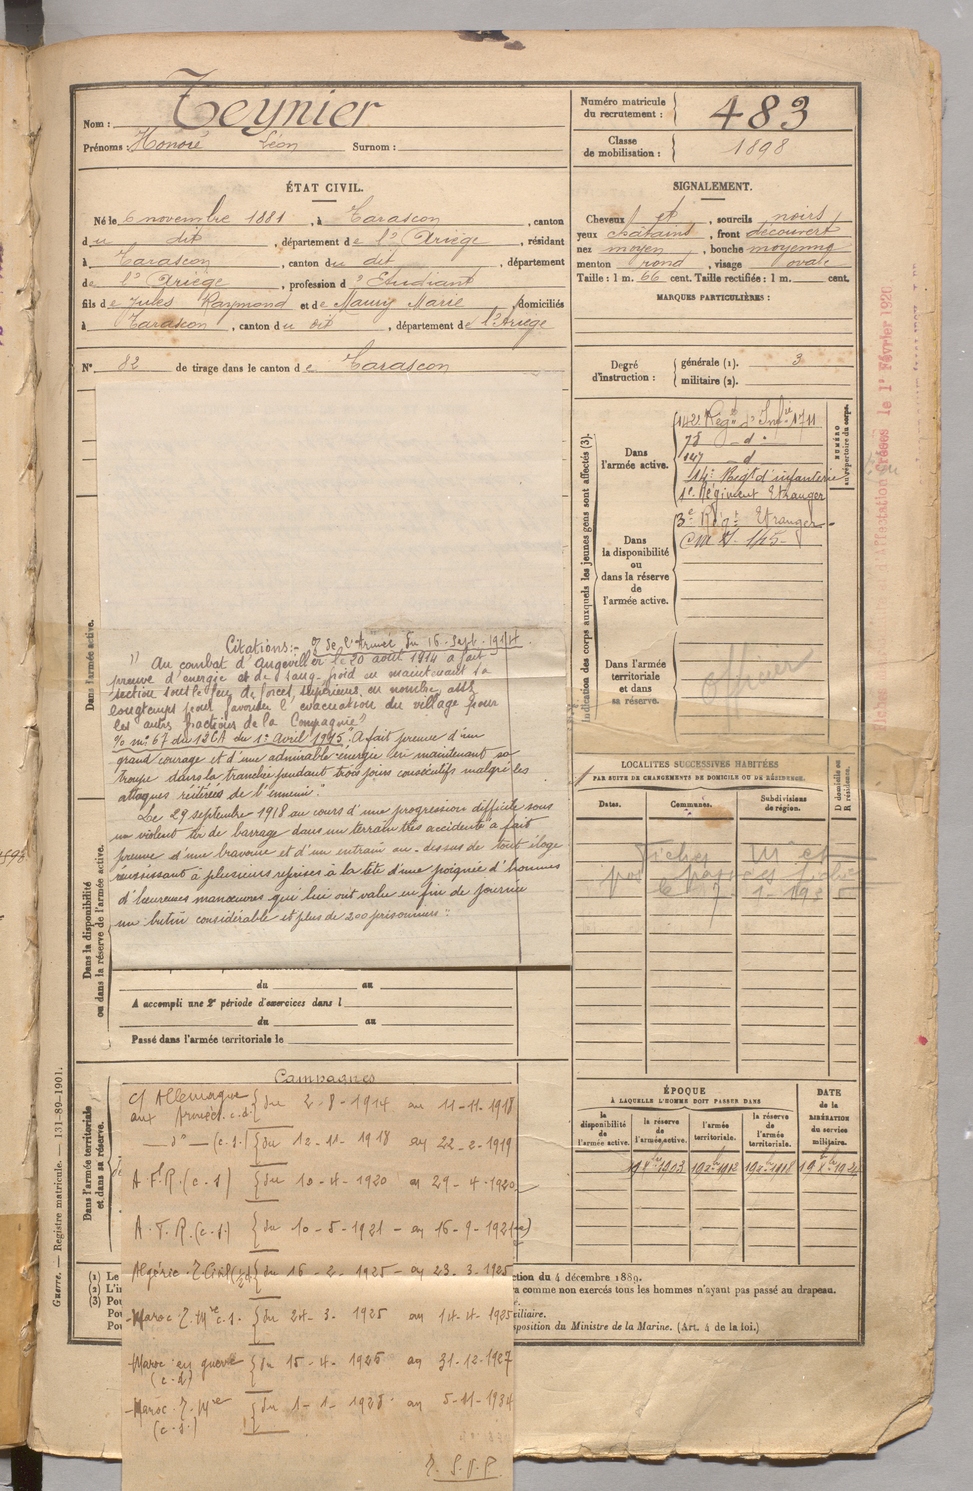 Nom : Teynier
Prénoms : Honoré Léon Surnom :
Numéro matricule du recrutement : 483
Classe de mobilisation : 1898
ÉTAT CIVIL.
Né le 6 novembre 1881, à Tarascon, canton
du dit, département de l'Ariège, résidant
à Tarascon, canton du dit, département
de l'Ariège, profession d'Etudiant
fils de Jules Raymond et de Maury Marie, domiciliés
à Tarascon, canton du dit, département de l'Ariège
N° 82 de tirage dans le canton de Tarascon
SIGNALEMENT.
Cheveux et, sourcils noirs
yeux châtains, front découvert
nez moyen, bouche moyenne
menton rond, visage ovale
Taille : 1 m. 66 cent. Taille rectifiée : 1 m. cent.
MARQUES PARTICULIÈRES :
Degré d'instruction : générale (1). 3
militaire (2).
Indication des corps auxquels les jeunes gens sont affectés (3).
NUMÉRO au répertoire du corps.
Dans l'armée active.
142e Régt d'Infie 1711
78 d
147 d
14e Regt d'infanterie
1e Régiment Etranger
Dans la disponibilité ou dans la réserve de l'armée active.
3e Régt Etranger
Dans l'armée territoriale et dans sa réserve.
Officier
Dans l'armée active.
Citations :- de l'Armée du 16-Sept-1914.
"Au combat d'Angeviller le 20 août 1914 a fait
preuve d'énergie et de sang-froid en maintenant sa
section sous le feu de forces supérieures en nombre, assez
longtemps pour favoriser l'évacuation du village pour
les autres fractions de la Compagnie"
% no 67 du 12 CA du 1er Avril 1915 "A fait preuve d'un
grand courage et d'une admirable énergie en maintenant sa
troupe dans la tranchée pendant trois jours consécutifs malgré les
attaques réitérées de l'ennemi".
Le 29 septembre 1918 au cours d'une progression difficile sous
un violent tir de barrage dans un terrain très accidenté a fait
preuve d'une bravoure et d'un entrain au-dessus de tout éloge
réussissant à plusieurs reprises à la tête d'une poignée d'hommes
d'heureuses manoeuvres qui lui ont valu en fin de journée
un butin considérable et plus de 200 prisonniers".
Dans la disponibilité ou dans la réserve de l'armée active.
du au
A accompli une 2e période d'exercices dans l
du au
Passé dans l'armée territoriale le
LOCALITÉS SUCCESSIVES HABITÉES
PAR SUITE DE CHANGEMENTS DE DOMICILE OU DE RÉSIDENCE.
Dates. Communes. Subdivisions de région. D domicile ou R résidence.
ÉPOQUE
À LAQUELLE L'HOMME DOIT PASSER DANS
la disponibilité de l'armée active. la réserve de l'armée active. l'armée territoriale. la réserve de l'armée territoriale.
DATE de la LIBÉRATION du service militaire.
Dans l'armée territoriale et dans sa réserve.
Campagnes
C/ Allemagne aux Armées c.d. du 2-8-1914 au 11-11-1918
— d° — (c.s.) du 12-11-1918 au 22-2-1919
A.F.R. (c.s) du 10-4-1920 au 29-4-1920
A.T.R. (c.s.) du 10-5-1921 - au 16-9-1921
Algérie. du 16-2-1925 - au 23-3-1925
Maroc. c.s. du 24-3-1925 au 14-4-1925
Maroc en guerre (c.d) du 15-4-1925 au 31-12-1927
Maroc. (c.s.) du 1-1-1928 au 5-11-1934
T.S.V.P.
(1) Le
(2) L'i
(3) Pou
Pou
Pou
ction du 4 décembre 1889.
a comme non exercés tous les hommes n'ayant pas passé au drapeau.
ciliaire.
sposition du Ministre de la Marine. (Art. 4 de la loi.)
Guerre. — Registre matricule. — 131-89-1901.
le 1er Février 1926